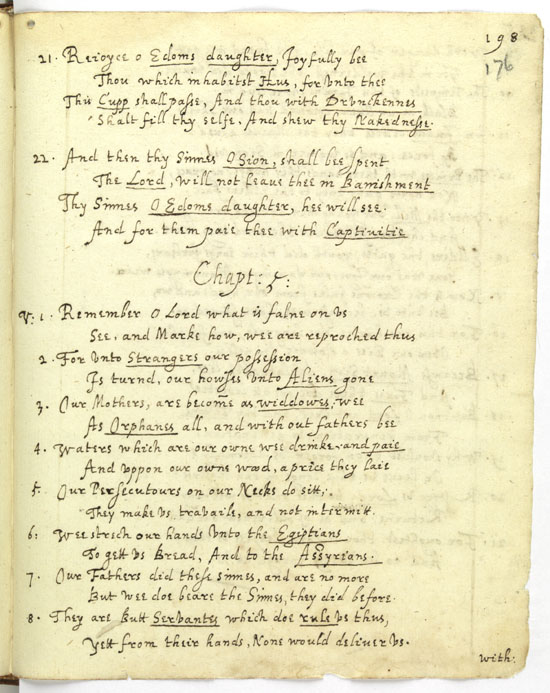 198
176
21. Reioyce o Edoms daughter, Joyfully bee
Thou which inhabitst Hus, for vnto thee
This Cupp shall passe, And thou with Drvnckennes
Shalt fill thy selfe, And shew thy Nakednesse.
22. And then thy Sinnes O Sion, shall bee spent
The Lord, will not leave thee in Banishment
Thy Sinnes O Edoms daughter, hee will see.
And for them paie thee with Captivitie
Chapt: 5:
V: 1. Remember O Lord what is falne on vs
See, and Marke how, wee are reproched thus
2. For vnto Strangers our possession
Is turnd, our howses vnto Aliens gone
3. Our Mothers, are become as widdowes, wee
As Orphanes all, and with out fathers bee
4. Waters which are our owne wee drinke, and paie
And vppon our owne wood, a price they laie
5. Our Persecutours on our Necks do sitt,
They make vs travaile, and not intermitt.
6: Wee stretch our hands vnto the Egiptians
To gett vs Bread, And to the Assyrians.
7. Our Fathers did these sinnes, and are no more
But wee doe beare the Sinnes, they did before.
8. They are butt Servantes which doe rule vs thus,
Yett from their hands, None would deliver vs.
with: